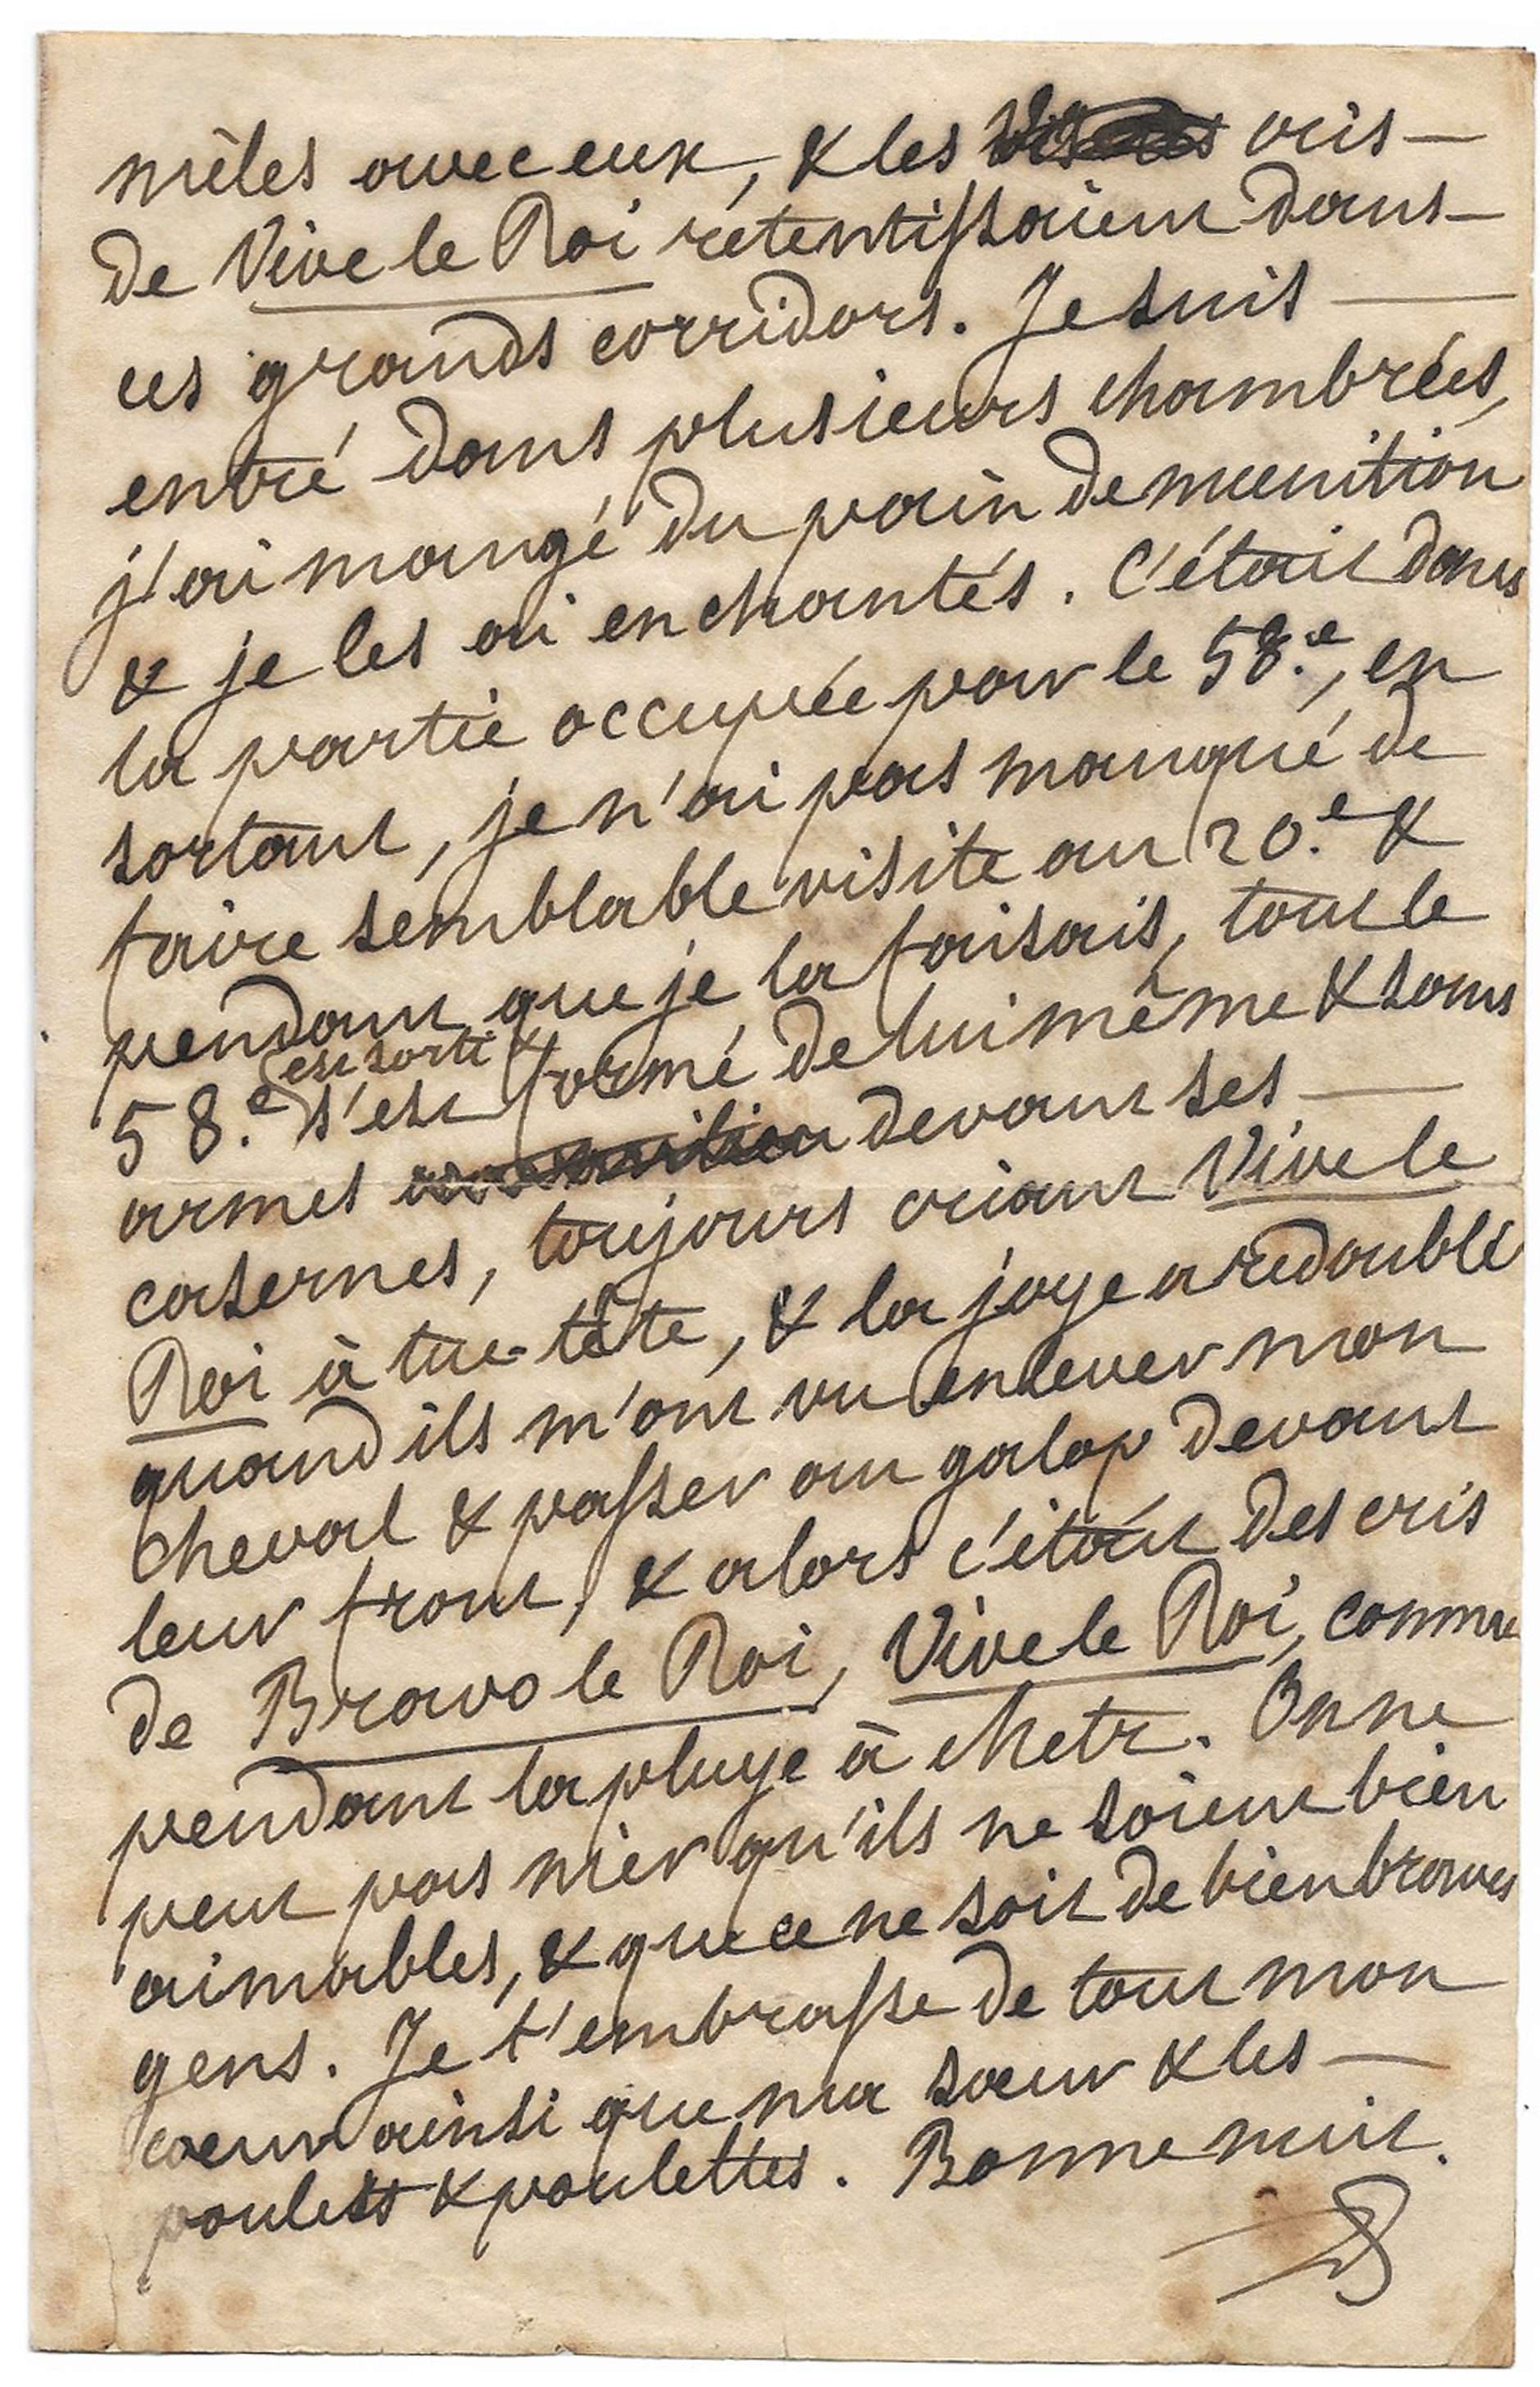 mêles avec eux, & les cris —
de Vive le Roi rétentissaient dans —
ces grands corridors. Je suis —
entré dans plusieurs chambrées,
j'ai mangé du pain de munition
& je les ai enchantés. C'était dans
la partie occupée par le 58.e, en
sortant, je n'ai pas manqué de
faire semblable visite au 20.e &
pendant que je la faisais, tout le
est sorti &
58.e s'est formé de lui même & sans
armes devant ses —
casernes, toujours criant Vive le
Roi à tue-tête, & la joye a redoublé
quand ils m'ont vu enlever mon
cheval & passer au galop devant
leur front, & alors c'était des cris
de Bravo le Roi, Vive le Roi, comme
pendant la pluye à Metz. On ne
peut pas nier qu'ils ne soient bien
aimables, & que ce ne soit de bien braves
gens. Je t'embrasse de tout mon
coeur ainsi que ma soeur & les —
poulets & poulettes. Bonne nuit.